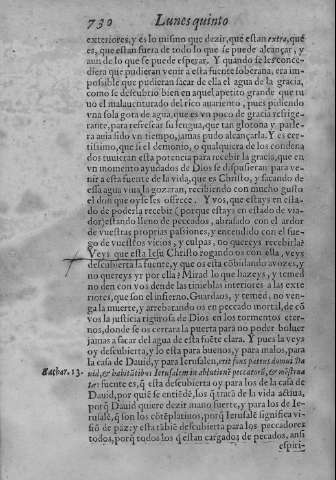 730 Lunes quinto
exteriores, y es lo mismo que dezir, que estan extra, que
es, que estan fuera de todo lo que se puede alcançar, y
aun de lo que se puede esperar. Y quando se les conce-
diera que pudieran venir a esta fuente soberana, era im-
possible que pudieran sacar de ella el agua de la gracia,
como se descubrio bien en aquel apetito grande que tu
uo el malauenturado del rico auariento, pues pidiendo
vna sola gota de agua, que es vn poco de gracia refrige-
rante, para refrescar su lengua, que tan glotona y parle-
ra auia sido vn tiempo, jamas pudo alcançarla. Y es cer-
tissimo, que si el demonio, o qualquiera de los condena
dos tuuieran esta potencia para recibir la gracia, que en
vn momento ayudados de Dios se dispusieran para ve-
nir a esta fuente de la vida, que es Christo, y sacando de
essa agua viua la gozaran, recibiendo con mucho gusto
el don que oy se les ofrece. Y vos, que estays en esta-
do de poderla recebir (porque estays en estado de via-
dor) estando lleno de peccados, abrasado con el ardor
de vuestras propias passiones, y encendido con el fue-
go de vuestros vicios, y culpas, no quereys recebirla?
Veys que esta Iesu Christo rogandoos con ella, veys
descubierta la fuente, y que os esta cõbidando a vozes, y
no quereys yr por ella? Mirad lo que hazeys, y temed
no den con vos dende las tinieblas interiores a las exte
riores, que son el infierno. Guardaos, y temed, no ven-
ga la muerte, y arrebatando os en peccado mortal, de cõ
vos la justicia rigurosa de Dios en los tormentos eter-
nos, donde se os cerrara la puerta para no poder boluer
jamas a sacar del agua de esta fuẽte clara. Y pues la veys
oy descubierta, y lo esta para buenos, y para malos, para
la casa de Dauid, y para Ierusalen, erit fons patens domui Da
Zachar. 13. uid, & habitãtibus Ierusalem in ablutionẽ peccatorũ, & mẽstrua
tæ: fuente es, q̃ esta descubierta oy para los de la casa de
Dauid, por quiẽ se entiẽdẽ, los q̃ tratã de la vida actiua,
porq̃ Dauid quiere dezir manu fuerte, y para los de Ie-
rusalẽ, q̃ son los cõtẽplatinos, porq̃ Ierusalẽ significa vi-
siõ de paz: y esta tãbiẽ descubierta para los peccadores
todos, porq̃ todos los q̃ estan cargados de pecados, ansi
espiri-